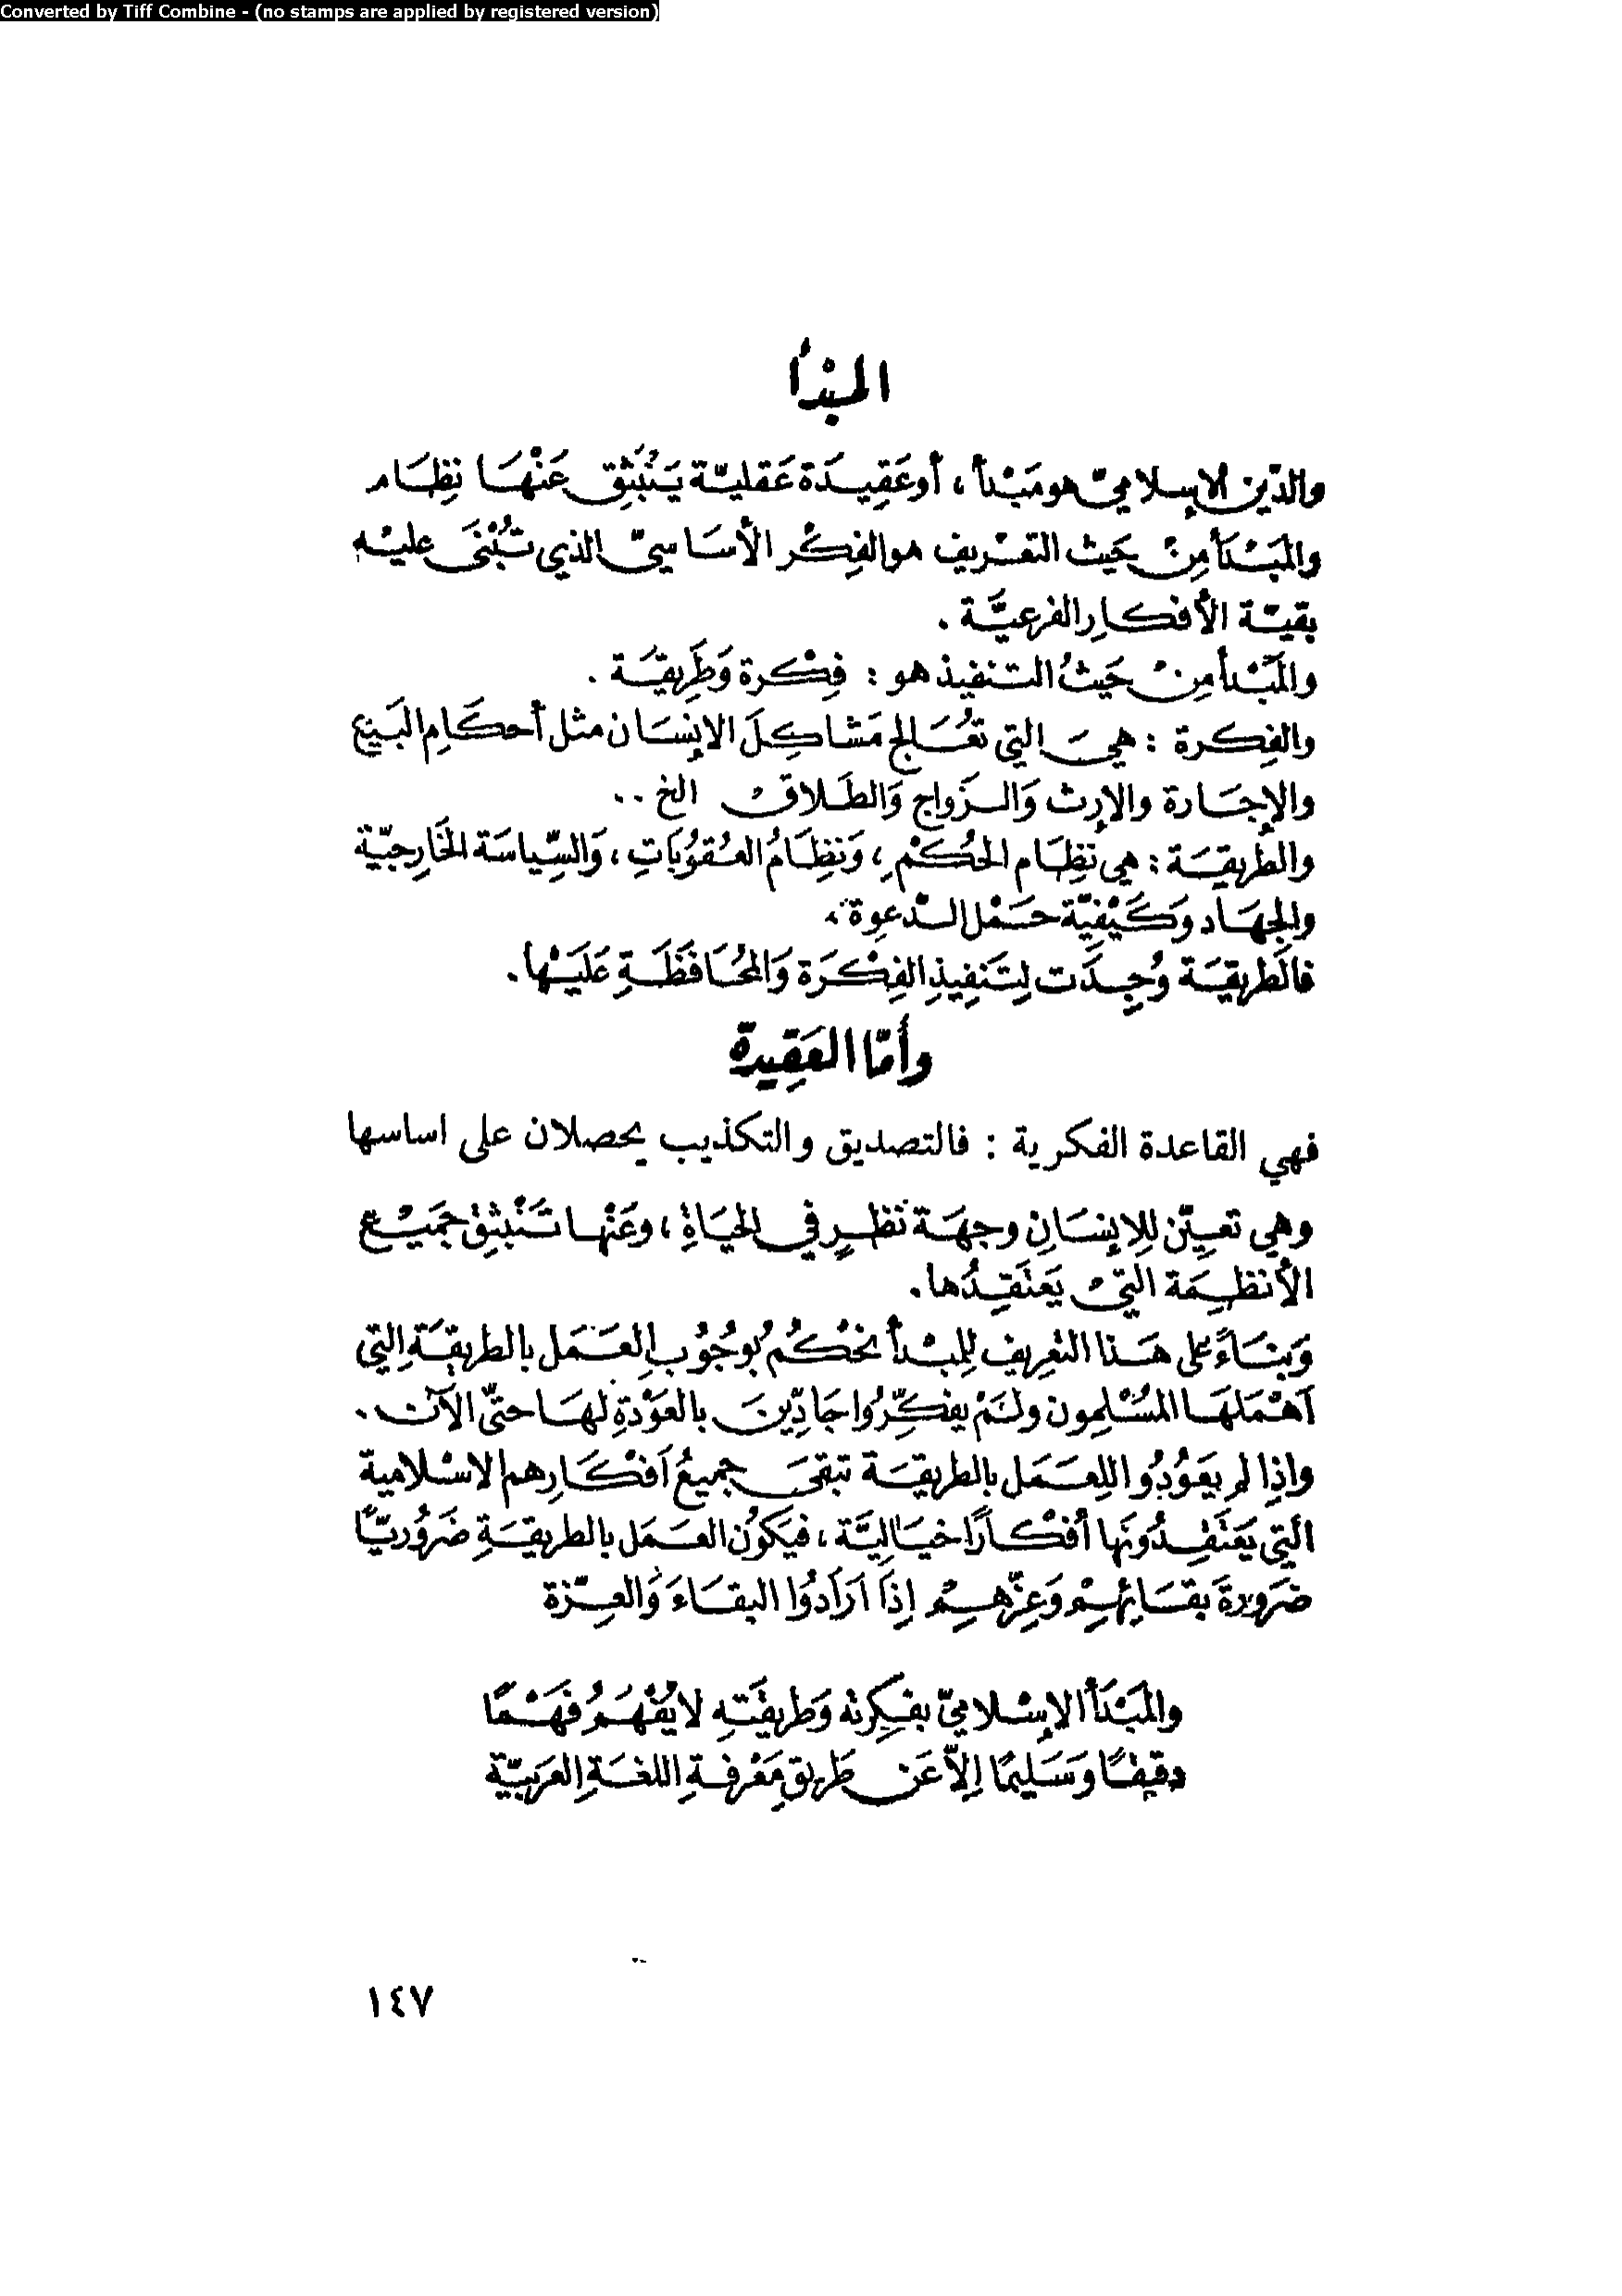 Converted by Tiff Combine - (no stamps are applied by registered version)
المبْدأ
والدّين الإسلاميّ هو مَبْدأ ، أو عَقِيدَة عَقليّة يَنْبَثِق عَنْهَا نظِام
والمَبْدَأ مِنْ حَيث التعْريف هو الفِكْر الأسَاسِيّ الذي تُبْنَى عليْه
بقيّة الأفكارِ الفرعيَّة .
والمَبْدأ مِنْ حَيثُ التنفيذ هو : فِكْرة وَطَرِيقَة .
والفِكرة : هيَ التي تعُالج مَشاكِلَ الإنسَان مثل أحكَامِ البَيْع
والإجَارة والإرث وَالزَواج وَالطَلاقْ الخ ..
والطَريقَة : هي نظِام الحُكْمِ ، وَنظِامُ العُقوُبَاتِ ، وَالسِّياسَة الخَارجيّة
والجهَاد وَكَيْفيّة حَمْل الدّعوة ،
فالَطريقَة وُجِدَت لِتَنفِيذِ الفِكْرَة وَالمحُافَظَةِ عَلَيْها .
وأمّا العَقِيدة
فهي القاعدة الفكرية : فالتصديق والتكذيب يحصلان على اساسها
وهي تعيِّن للإنسَانِ وجهَة نَظرٍ في الحيَاةْ ، وعَنْها تَنْبثِقْ جَميْع
الأنظِمَة التيْ يَعتَقِدُها .
وَبنَاءً على هَذا التعْريف لِلمبْدأ نحْكُم بُوجُوبِ العَمَل بالطريقَةِ التي
أهْمَلَهَا المُسْلِمون ولَمْ يفكِّرُوا جَادِّينَ بالعَوْدَةِ لهَا حتىّ الآن .
واذِا لم يعَوُدُوا للِعمَل بالطريقَة تبقىَ جميعُ أفْكَارِهم الاسْلامية
التي يَعتَقِدُونَها أفْكارًا خيَاليَّة ، فيَكوُن العَمَل بالطريقَةِ ضَرُوريّاً
ضَرورة بقَائِهِمْ وَعِزّهِمْ إذَا أرَادُوا البقَاءَ وَالعِزّة
والمَبْدَأ الإسْلاميّ بفكِرته وَطريقَتهِ لا يُفْهَمُ فَهْمًا
دقيقًا وَسَليمًا إلاّ عَن طَريقِ مَعْرفَةِ اللغَةِ العَربيّة
١٤٧